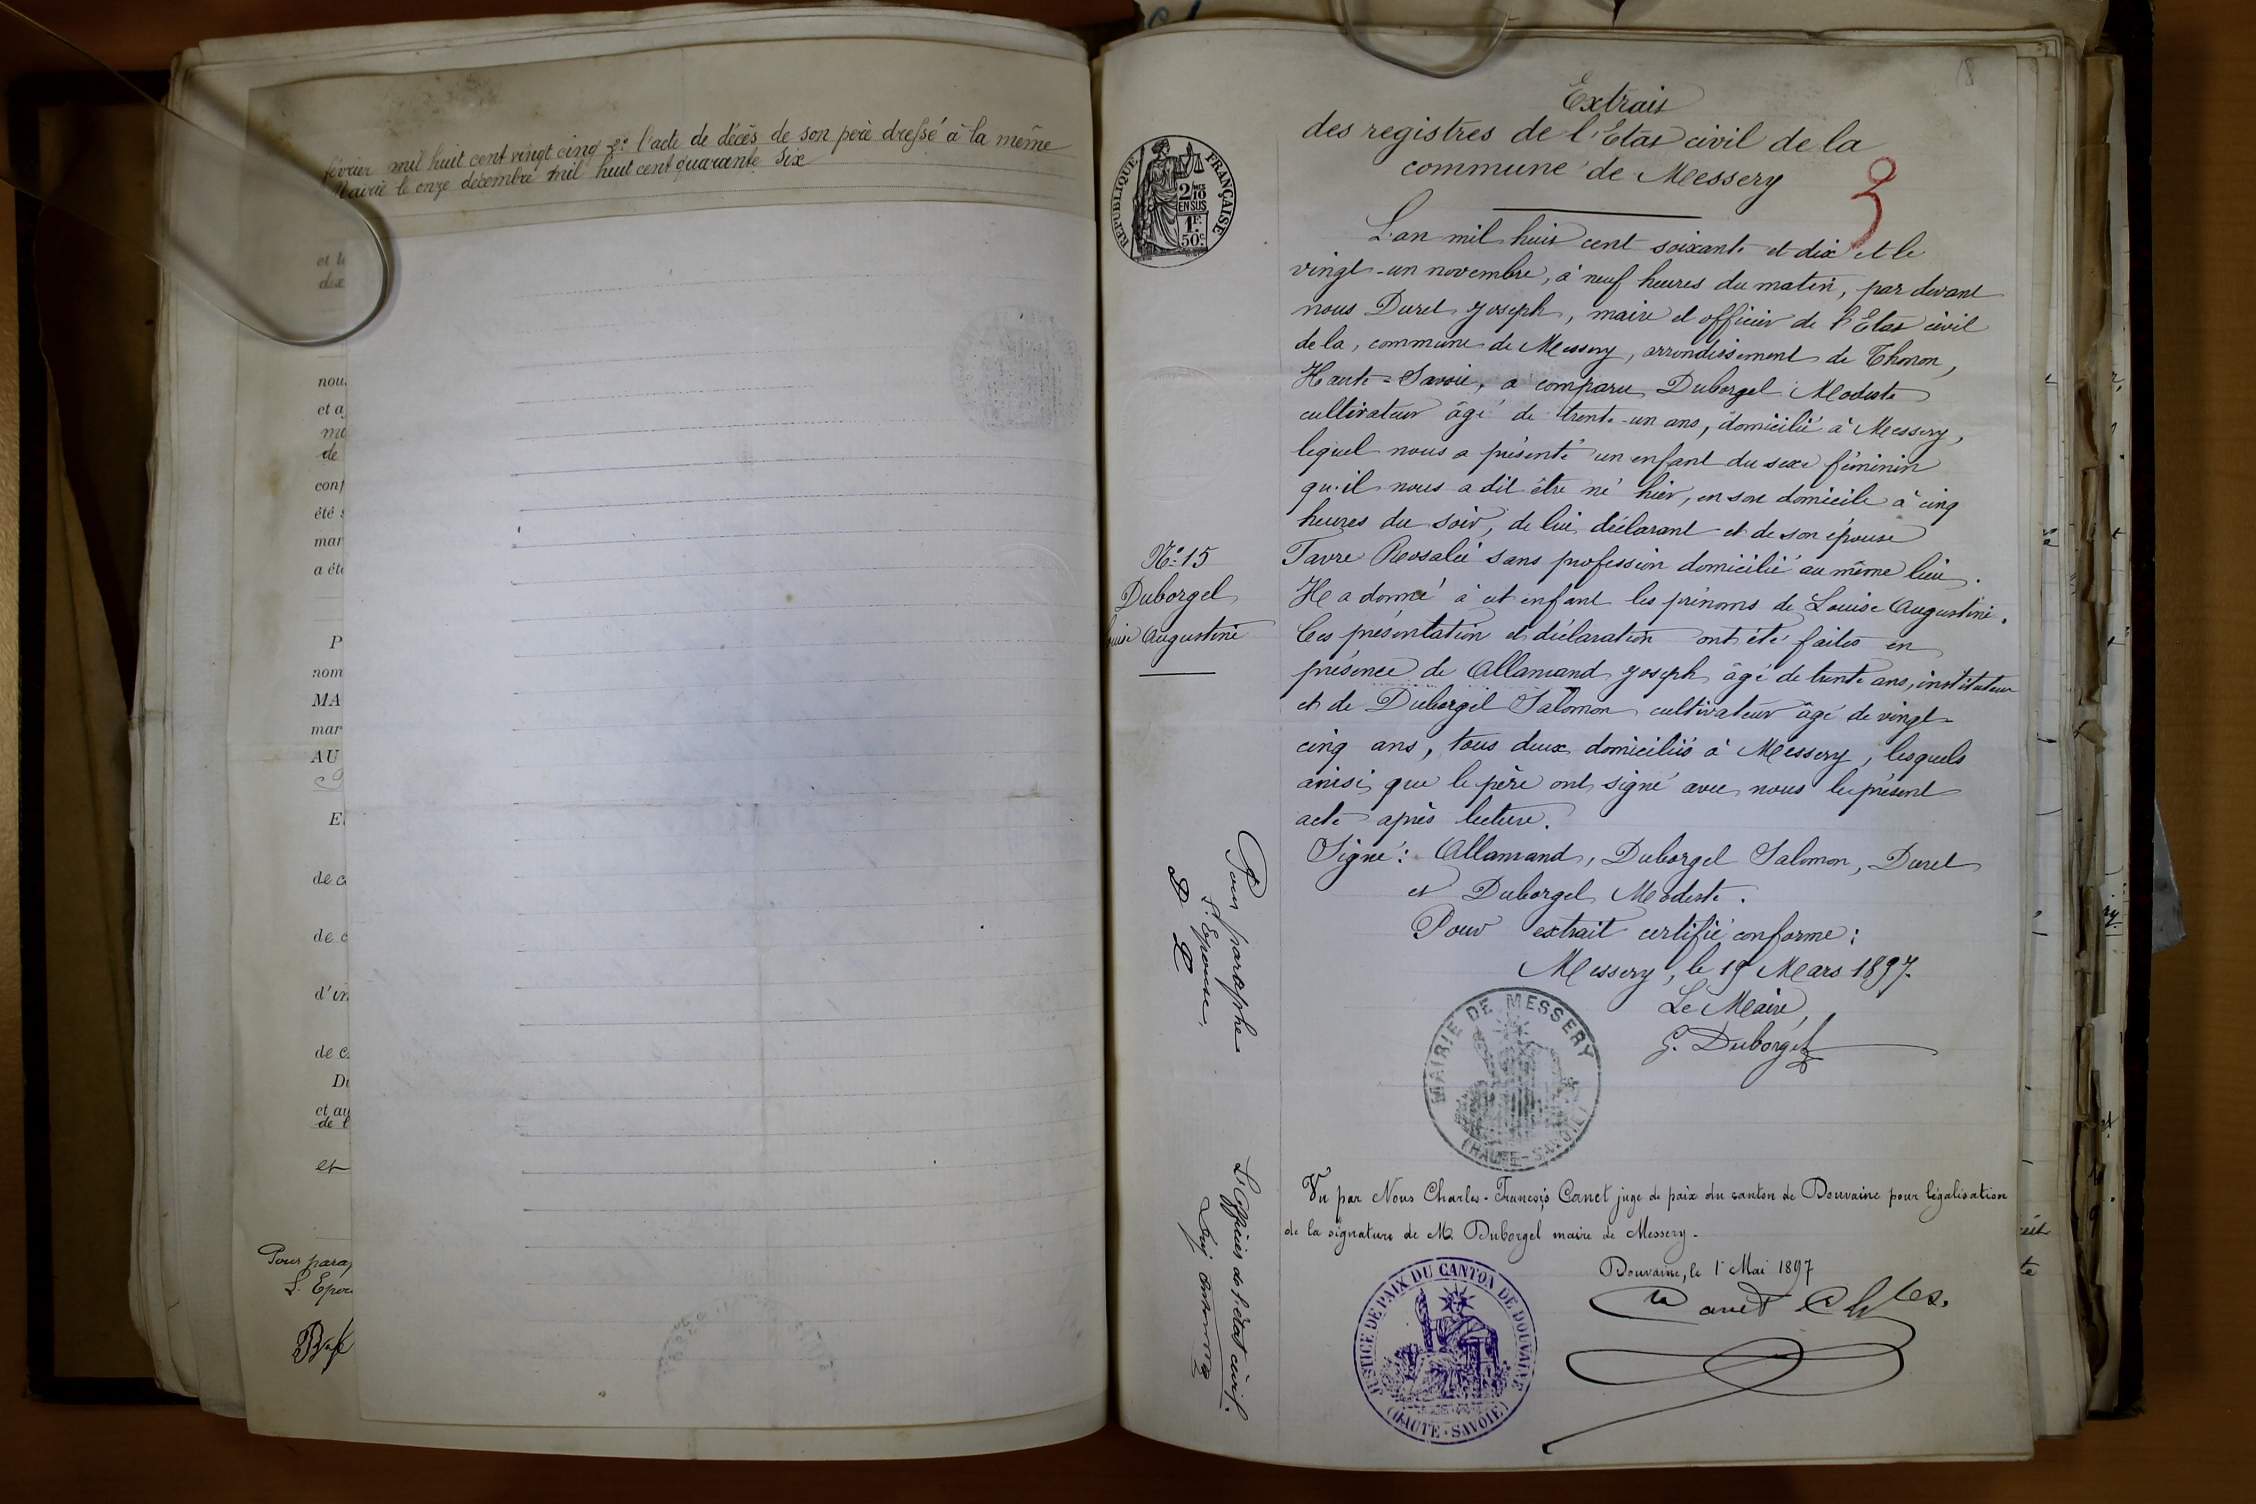 février mil huit cent vingt cinq 2º l'acte de décès de son père dressé à la même
Mairie le onze décembre mil huit cent quarante six
et le
dix
nou
et a
de
conf
été
mar
a été
P
nom
MA
mar
AU
de c
de c
d'un
de c
et au
de l
et
Pour para
L'Epou
8
Extrait
des registres de l'Etat civil de la
commune de Messery
3
REPUBLIQUE FRANÇAISE
2/10
EN SUS
1F.
50c
L'an mil huit cent soixante et dix et le
vingt-un novembre, à neuf heures du matin, par devant
nous Duret Joseph, maire et officier de l'Etat civil
de la commune de Messery, arrondissement de Thonon,
Haute=Savoie, a comparu Duborgel Modeste
cultivateur âgé de trente-un ans, domicilié à Messery,
lequel nous a présenté un enfant du sexe féminin
qu'il nous a dit être né hier, en son domicile à cinq
heures du soir, de lui déclarant et de son épouse
Favre Rosalie sans profession domicilié au même lieu.
Il a donné à cet enfant les prénoms de Louise Augustine.
Ces présentation et déclaration ont été faites en
présence de Allamand Joseph âgé de trente ans, instituteur
et de Duborgel Salomon cultivateur âgé de vingt-
cinq ans, tous deux domiciliés à Messery, lesquels
ainsi que le père ont signé avec nous le présent
acte après lecture.
Signé: Allamand, Duborgel Salomon, Duret
et Duborgel Modeste.
Pour extrait certifié conforme:
Messery, le 19 Mars 1897.
Le Maire,
G. Duborgel
Nº 15
Duborgel
Louise Augustine
Pour paraphe
L'Epouse,
D L
L'Officier de l'état civil.
MAIRIE DE MESSERY
(HAUTE-SAVOIE)
Vu par Nous Charles-François Canet juge de paix du canton de Douvaine pour légalisation
de la signature de M. Duborgel maire de Messery.
Douvaine, le 1er Mai 1897
Canet Chles.
JUSTICE DE PAIX DU CANTON DE DOUVAINE
(HAUTE-SAVOIE)